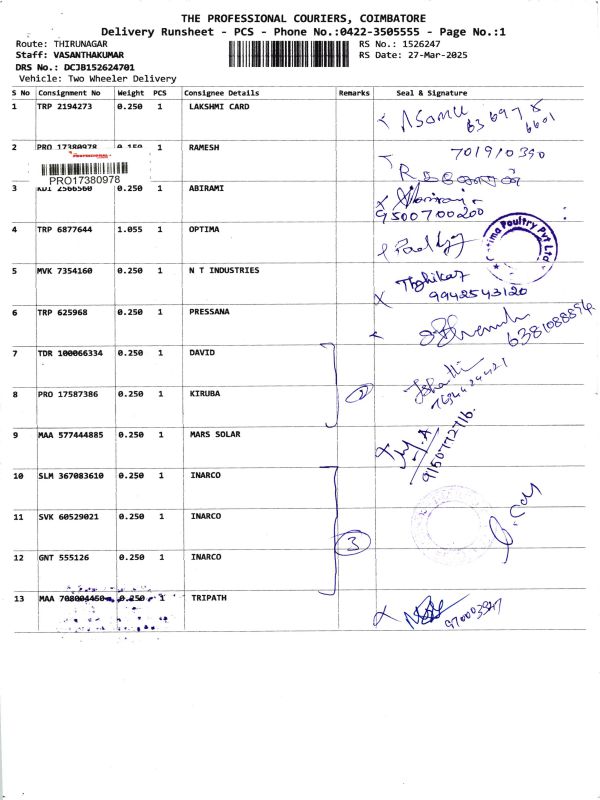 THE PROFESSIONAL COURIERS, COIMBATORE
Delivery Runsheet - PCS - Phone No.:0422-3505555 - Page No.:1
Route: THIRUNAGAR
Staff: VASANTHAKUMAR
DRS No.: DCJB152624701
Vehicle: Two Wheeler Delivery
RS No.: 1526247
RS Date: 27-Mar-2025
S No Consignment No Weight PCS Consignee Details Remarks Seal & Signature
1 TRP 2194273 0.250 1 LAKSHMI CARD
2 PRO 17380978 0.150 1 RAMESH 7019710390
PROFESSIONAL
PRO17380978
3 KDI 2566560 0.250 1 ABIRAMI 9500700200
4 TRP 6877644 1.055 1 OPTIMA
Optima Poultry Pvt Ltd
5 MVK 7354160 0.250 1 N T INDUSTRIES 9942543120
6 TRP 625968 0.250 1 PRESSANA
7 TDR 100066334 0.250 1 DAVID
8 PRO 17587386 0.250 1 KIRUBA 2
9 MAA 577444885 0.250 1 MARS SOLAR 9150772716
10 SLM 367083610 0.250 1 INARCO
11 SVK 60529021 0.250 1 INARCO
12 GNT 555126 0.250 1 INARCO 3
13 MAA 708004450 0.250 1 TRIPATH